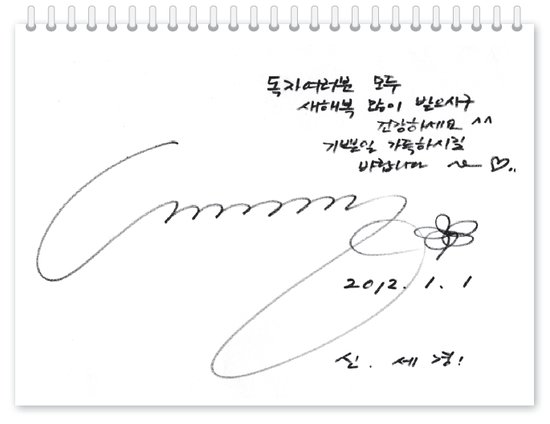 독자여러분 모두
새해복 많이 받으시구
건강하세요 ^^
기쁜일 가득하시길
바랍니다 ~ ♡..
2012. 1. 1
신. 세 경!